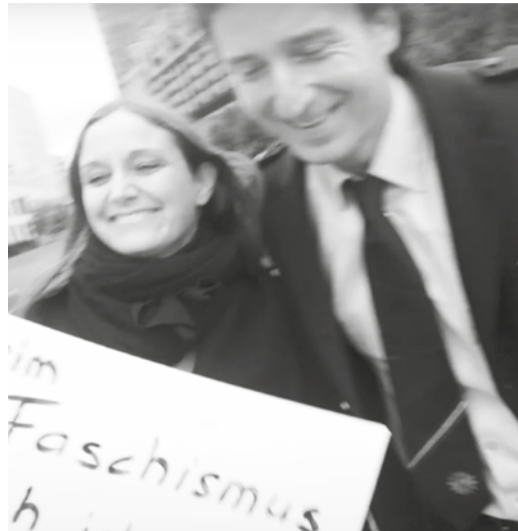 im
Faschismus